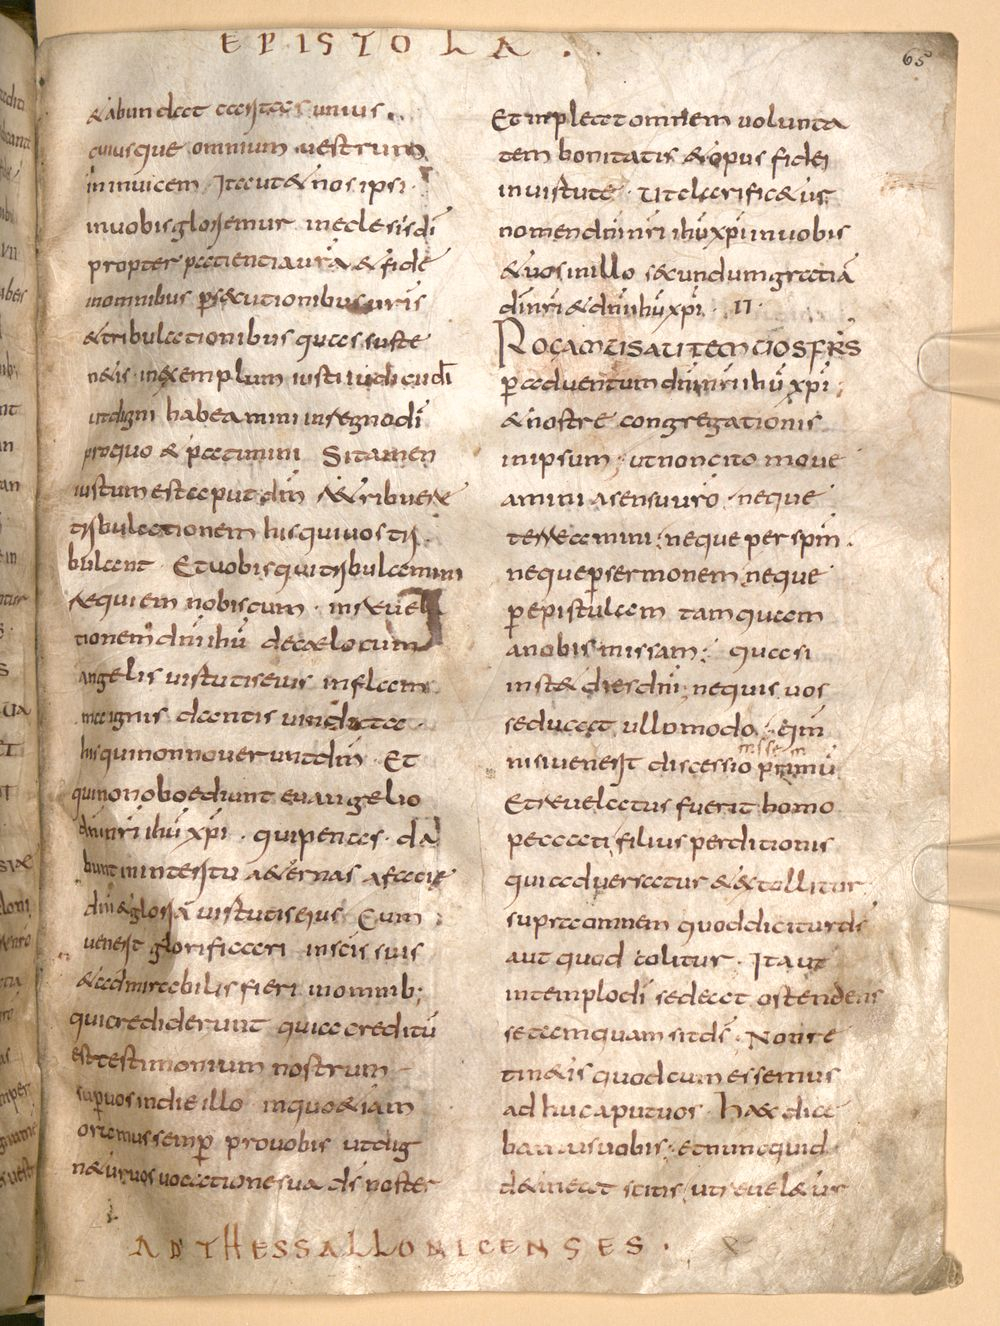 EPISTOLA .
65
& abundat caritas unius
cuiusque omnium uestrum
in inuicem Ita ut & nos ipsi
in uobis gloriemur in eclesis dī
propter patientia urā & fidē
in omnibus persecutionibus uris
& tribulationibus quas suste
n&is in exemplum iusti iudicii dī
ut digni habeamini in regno dī
pro quo & patimini Si tamen
iustum est aput dm̄ r&ribuere
tribulationem his qui uos tri
bulant Et uobis qui tribulamini
requiem nobiscum in reuela
tionem dn̄i ihū de caelo cum
angelis uirtutis eius in flam
ma ignis dantis uindicta
his qui non nouerunt dm̄ Et
qui non oboediunt euangelio
dn̄i nri ihū xpī qui penas da
bunt in interitu a&ernas a facie
dn̄i & gloria uirtutis eius Cum
uenerit glorificari in scis suis
& admirabilis fieri in omnib;
qui crediderunt quia creditū
est testimonium nostrum
super uos in die illo in quo & iam
oremus semper pro uobis ut dig
n&ur uos uocatione sua ds̄ noster
Et inpleat omnem uolunta
tem bonitatis & opus fidei
in uirtute Ut clarific&ur
nomen dn̄i nri ihū xpī in uobis
& uos in illo secundum gratiā
dī nri & dn̄i ihū xpī . II .
ROGAMUS AUTEM UOS FRS
per aduentum dn̄i nri ihū xpī
& nostre congregationis
in ipsum ut non cito moue
amini a sensu uro neque
terreamini neque per spm̄ .
neque per sermonem neque
per epistulam tamquam
a nobis missam quasi
inst& dies dn̄i nequis uos
seducat ullo modo qm̄
nisi uenerit discessio primū
Et reuelatus fuerit homo
peccati filius perditionis
qui aduersatur & extollitur
supra omnem quod dicitur ds̄
aut quod colitur Ita ut
in templo dī sedeat ostendens
se tamquam sit ds̄ Non re
tin&is quod cum essemus
adhuc aput uos haec dice
bamus uobis et nunc quid
d&ineat scitis ut reuel&ur
AD THESSALLONICENSES .